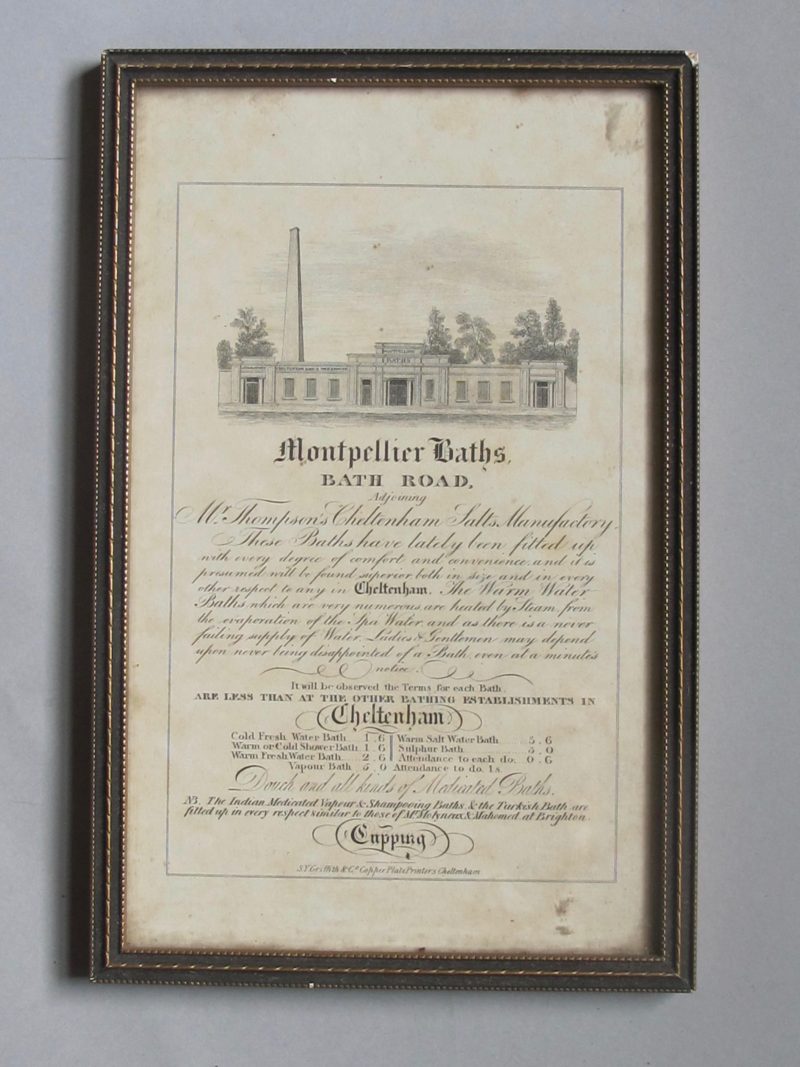 MONTPELLIER
BATHS
Montpellier Baths,
BATH ROAD,
Adjoining
Mr. Thompson's Cheltenham Salts Manufactory.
These Baths have lately been fitted up
with every degree of comfort and convenience, and it is
presumed will be found superior both in size and in every
other respect to any in Cheltenham. The Warm Water
Baths which are very numerous are heated by Steam from
the evaporation of the Spa Water, and as there is a never
failing supply of Water, Ladies & Gentlemen may depend
upon never being disappointed of a Bath, even at a minute's
notice.
It will be observed the Terms for each Bath,
ARE LESS THAN AT THE OTHER BATHING ESTABLISHMENTS IN
Cheltenham
Cold Fresh Water Bath 1 . 6 Warm Salt Water Bath 3 . 6
Warm or Cold Shower Bath 1 . 6 Sulphur Bath 5 . 0
Warm Fresh Water Bath 2 . 6 Attendance to each do. 0 . 6
Vapour Bath 5 . 0 Attendance to do. 1s.
Douch and all kinds of Medicated Baths.
NB. The Indian Medicated Vapour & Shampooing Baths, & the Turkish Bath are
fitted up in every respect similar to those of Mr. Molyneux & Mahomed at Brighton.
Cupping
S.Y. Griffith & Co. Copper Plate Printers Cheltenham